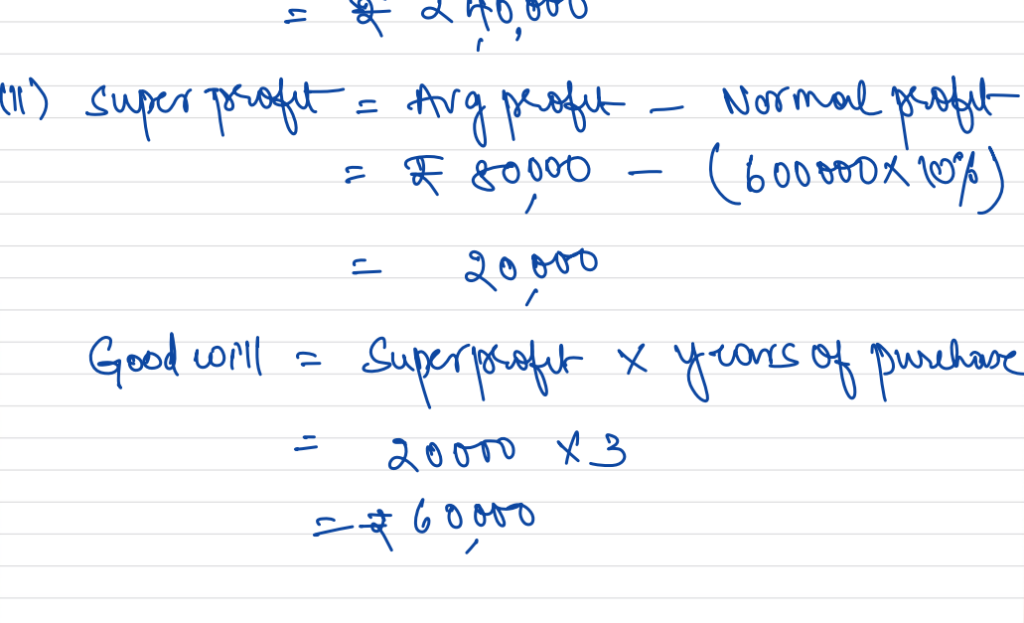 = ₹ 240,000
(II) Super profit = Avg profit - Normal profit
= ₹ 80,000 - (600000 x 10%)
= 20,000
Goodwill = Superprofit x years of purchase
= 20000 x 3
= ₹ 60,000